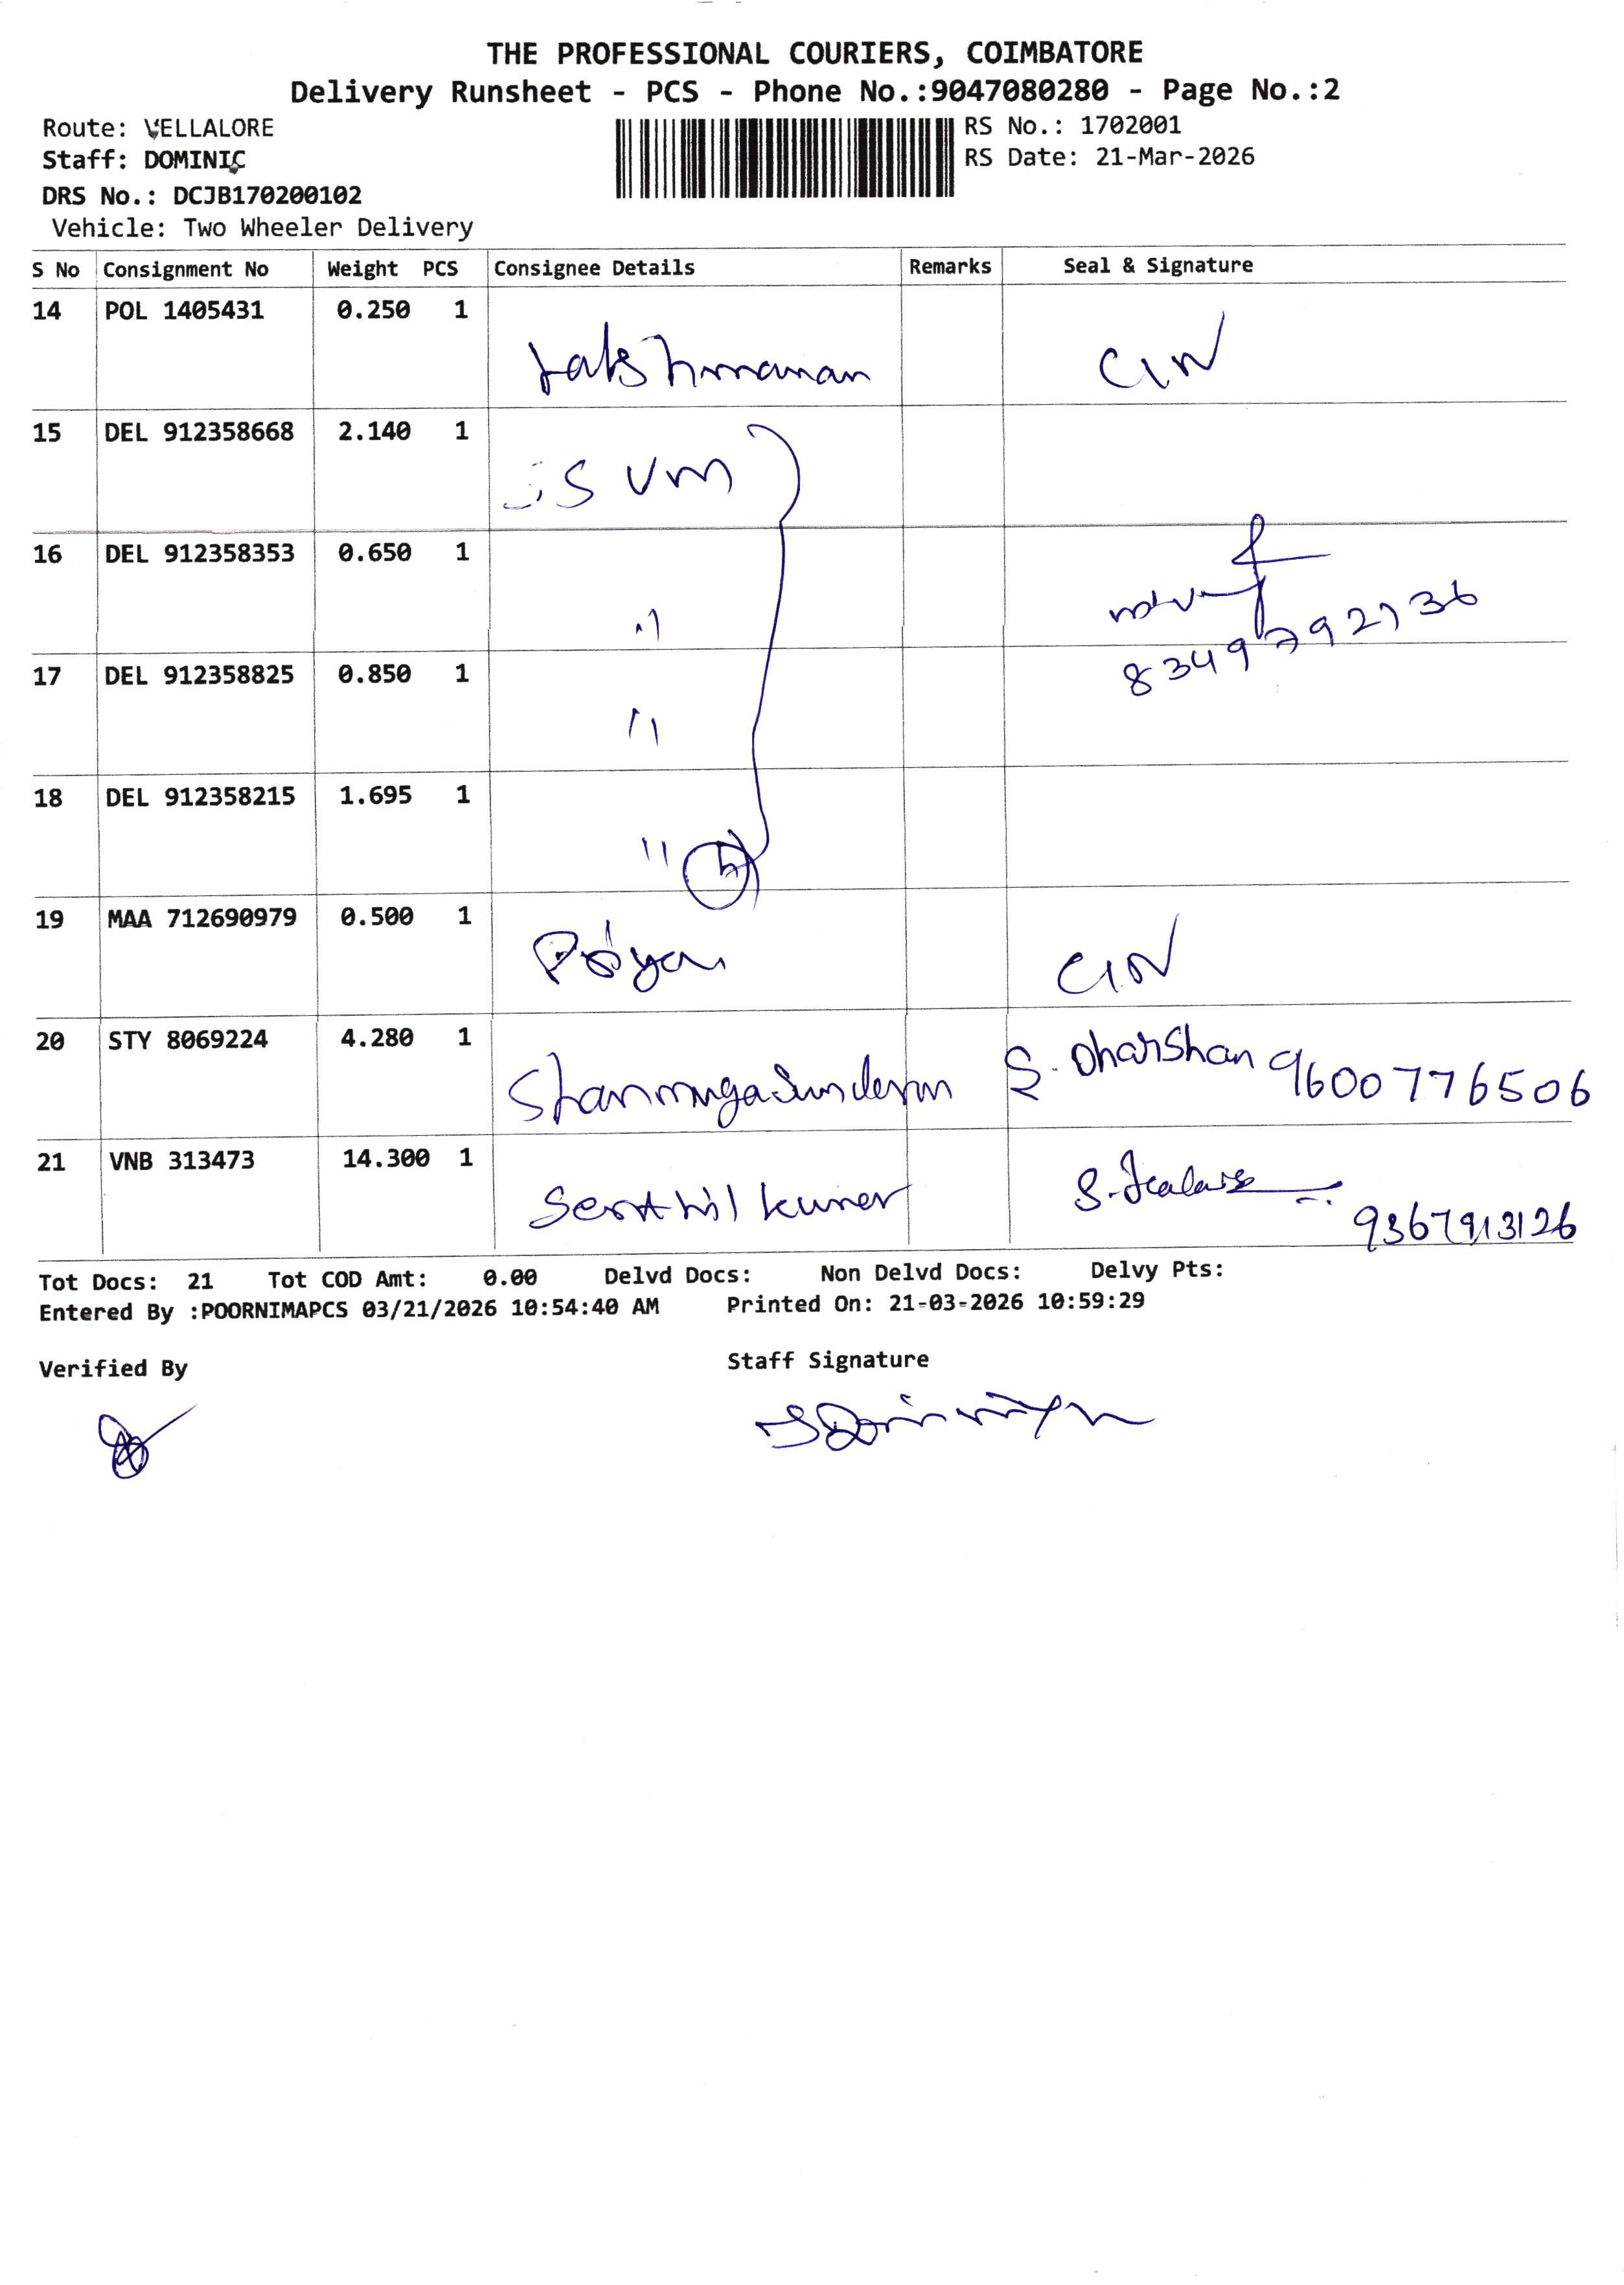 THE PROFESSIONAL COURIERS, COIMBATORE
Delivery Runsheet - PCS - Phone No.:9047080280 - Page No.:2
Route: VELLALORE
RS No.: 1702001
Staff: DOMINIC
RS Date: 21-Mar-2026
DRS No.: DCJB170200102
Vehicle: Two Wheeler Delivery
S No Consignment No Weight PCS Consignee Details Remarks Seal & Signature
14 POL 1405431 0.250 1
Lakshmanan
15 DEL 912358668 2.140 1
SVM
16 DEL 912358353 0.650 1
"
17 DEL 912358825 0.850 1
"
18 DEL 912358215 1.695 1
"
19 MAA 712690979 0.500 1
20 STY 8069224 4.280 1
Shanmugasunderam S. Dharshan 9600776506
21 VNB 313473 14.300 1
Senthil kumer
9367913126
Tot Docs: 21 Tot COD Amt: 0.00 Delvd Docs: Non Delvd Docs: Delvy Pts:
Entered By :POORNIMAPCS 03/21/2026 10:54:40 AM Printed On: 21-03-2026 10:59:29
Verified By Staff Signature